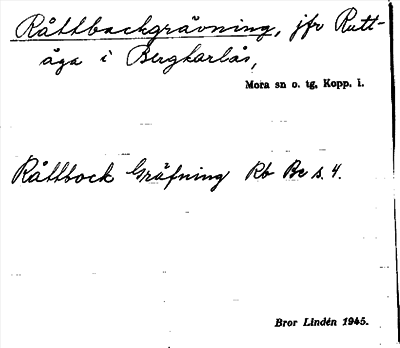 Råttbackgrävning, jfr Rutt-
åga i Bergkarlås,
Mora sn o. tg, Kopp. l.
Råttbock Gräfning Rb Be s. 4.
Bror Lindén 1945.